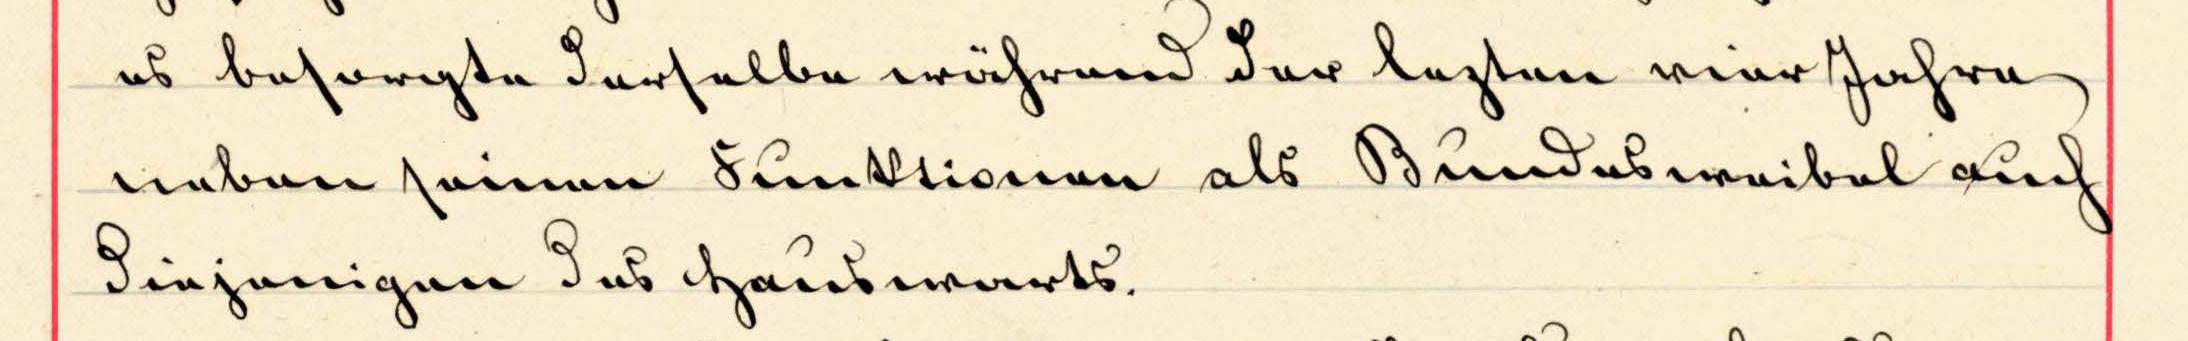 es besorgte derselbe während der lezten vier Jahre
neben seinen Funktionen als Bundesweibel auch
diejenigen des Hauswarts.